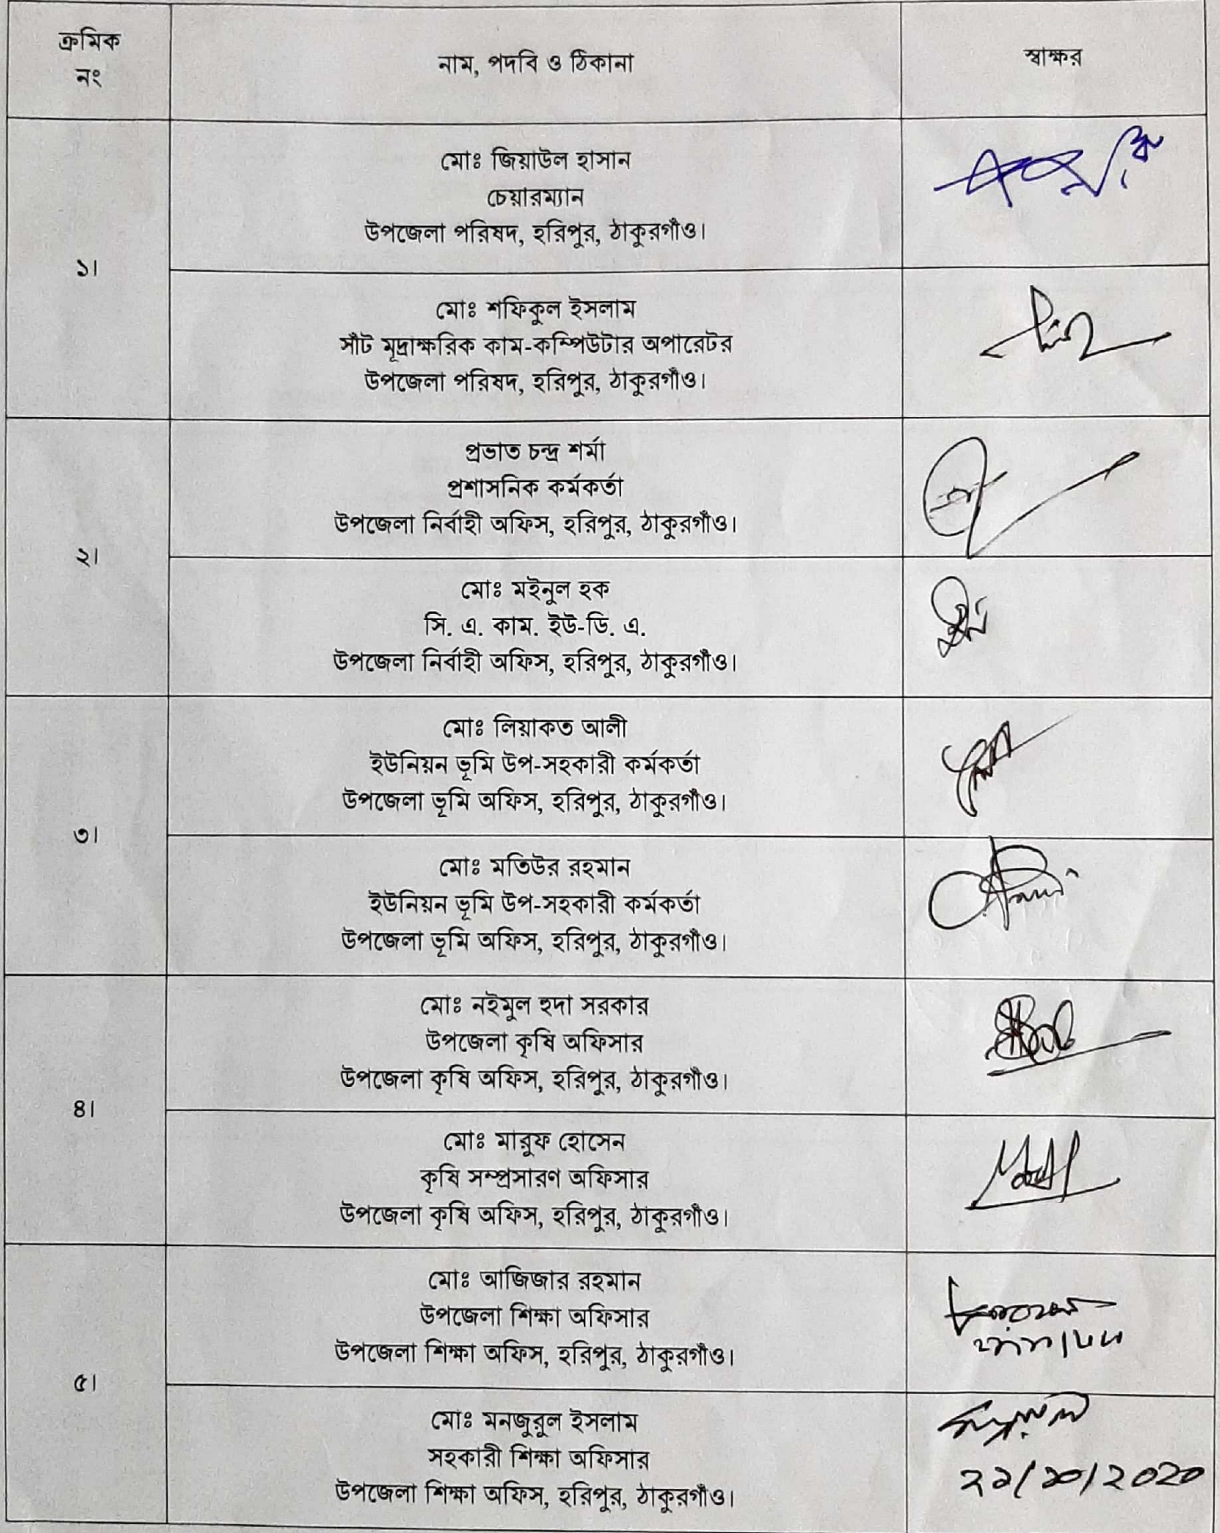 ক্রমিক
নং
নাম, পদবি ও ঠিকানা
স্বাক্ষর
১।
মোঃ জিয়াউল হাসান
চেয়ারম্যান
উপজেলা পরিষদ, হরিপুর, ঠাকুরগাঁও।
মোঃ শফিকুল ইসলাম
সাঁট মূদ্রাক্ষরিক কাম-কম্পিউটার অপারেটর
উপজেলা পরিষদ, হরিপুর, ঠাকুরগাঁও।
২।
প্রভাত চন্দ্র শর্মা
প্রশাসনিক কর্মকর্তা
উপজেলা নির্বাহী অফিস, হরিপুর, ঠাকুরগাঁও।
মোঃ মইনুল হক
সি. এ. কাম. ইউ-ডি. এ.
উপজেলা নির্বাহী অফিস, হরিপুর, ঠাকুরগাঁও।
৩।
মোঃ লিয়াকত আলী
ইউনিয়ন ভূমি উপ-সহকারী কর্মকর্তা
উপজেলা ভূমি অফিস, হরিপুর, ঠাকুরগাঁও।
মোঃ মতিউর রহমান
ইউনিয়ন ভূমি উপ-সহকারী কর্মকর্তা
উপজেলা ভূমি অফিস, হরিপুর, ঠাকুরগাঁও।
৪।
মোঃ নইমুল হুদা সরকার
উপজেলা কৃষি অফিসার
উপজেলা কৃষি অফিস, হরিপুর, ঠাকুরগাঁও।
মোঃ মারুফ হোসেন
কৃষি সম্প্রসারণ অফিসার
উপজেলা কৃষি অফিস, হরিপুর, ঠাকুরগাঁও।
৫।
মোঃ আজিজার রহমান
উপজেলা শিক্ষা অফিসার
উপজেলা শিক্ষা অফিস, হরিপুর, ঠাকুরগাঁও।
মোঃ মনজুরুল ইসলাম
সহকারী শিক্ষা অফিসার
উপজেলা শিক্ষা অফিস, হরিপুর, ঠাকুরগাঁও।